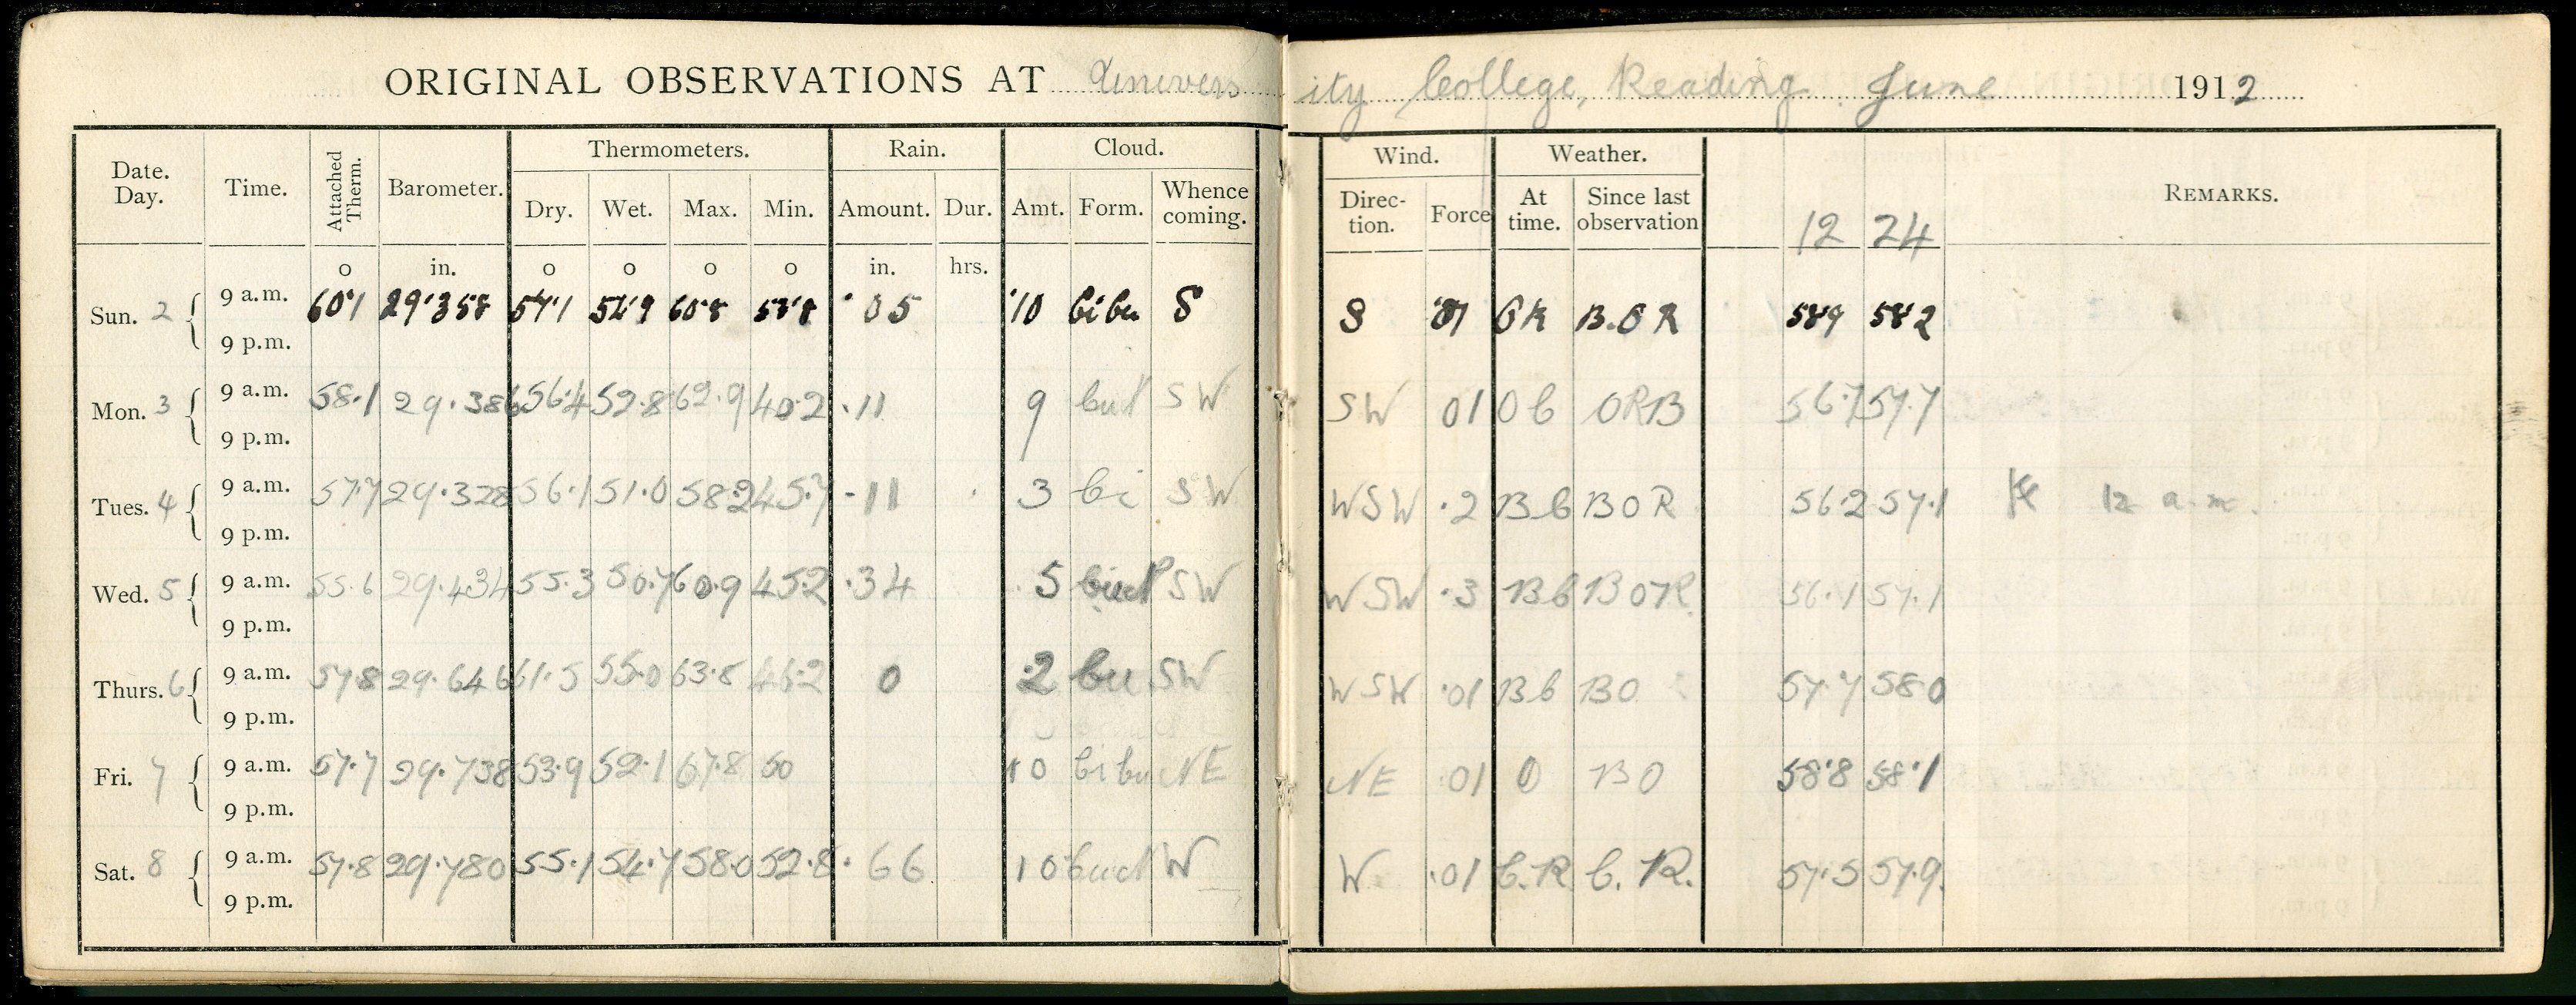 ORIGINAL OBSERVATIONS AT University College, Reading June 1912
Date. Day. Time. Attached Therm. Barometer. Thermometers. Rain. Cloud. Wind. Weather. REMARKS.
Dry. Wet. Max. Min. Amount. Dur. Amt. Form. Whence coming. Direction. Force At time. Since last observation 12 24
o in. o o o o in. hrs.
Sun. 2 9 a.m. 60.1 29.358 57.1 60.8 .05 10 S S B.O R 58.9 58.2
9 p.m.
Mon. 3 9 a.m. 58.1 29.386 56.4 52.8 62.9 40.2 .11 9 SW SW 01 O b ORB 56.7 57.7
9 p.m.
Tues. 4 9 a.m. 57.7 29.328 56.1 51.0 58.2 45.7 .11 3 Ci SW WSW .2 B b B O R 56.2 57.1 12 a.m.
9 p.m.
Wed. 5 9 a.m. 55.6 29.434 55.3 50.7 60.9 45.2 .34 5 SW WSW .3 B b 56.1 57.1
9 p.m.
Thurs. 6 9 a.m. 57.8 29.646 61.5 55.0 63.8 46.2 0 2 Cu SW WSW .01 B b B O 57.7 58.0
9 p.m.
Fri. 7 9 a.m. 57.7 29.738 53.9 52.1 67.8 50 10 Ci Cu NE NE .01 O B O 58.8 58.1
9 p.m.
Sat. 8 9 a.m. 57.8 29.780 55.1 54.7 58.0 52.8 .66 10 W W .01 C.R C.R. 57.5 57.9
9 p.m.